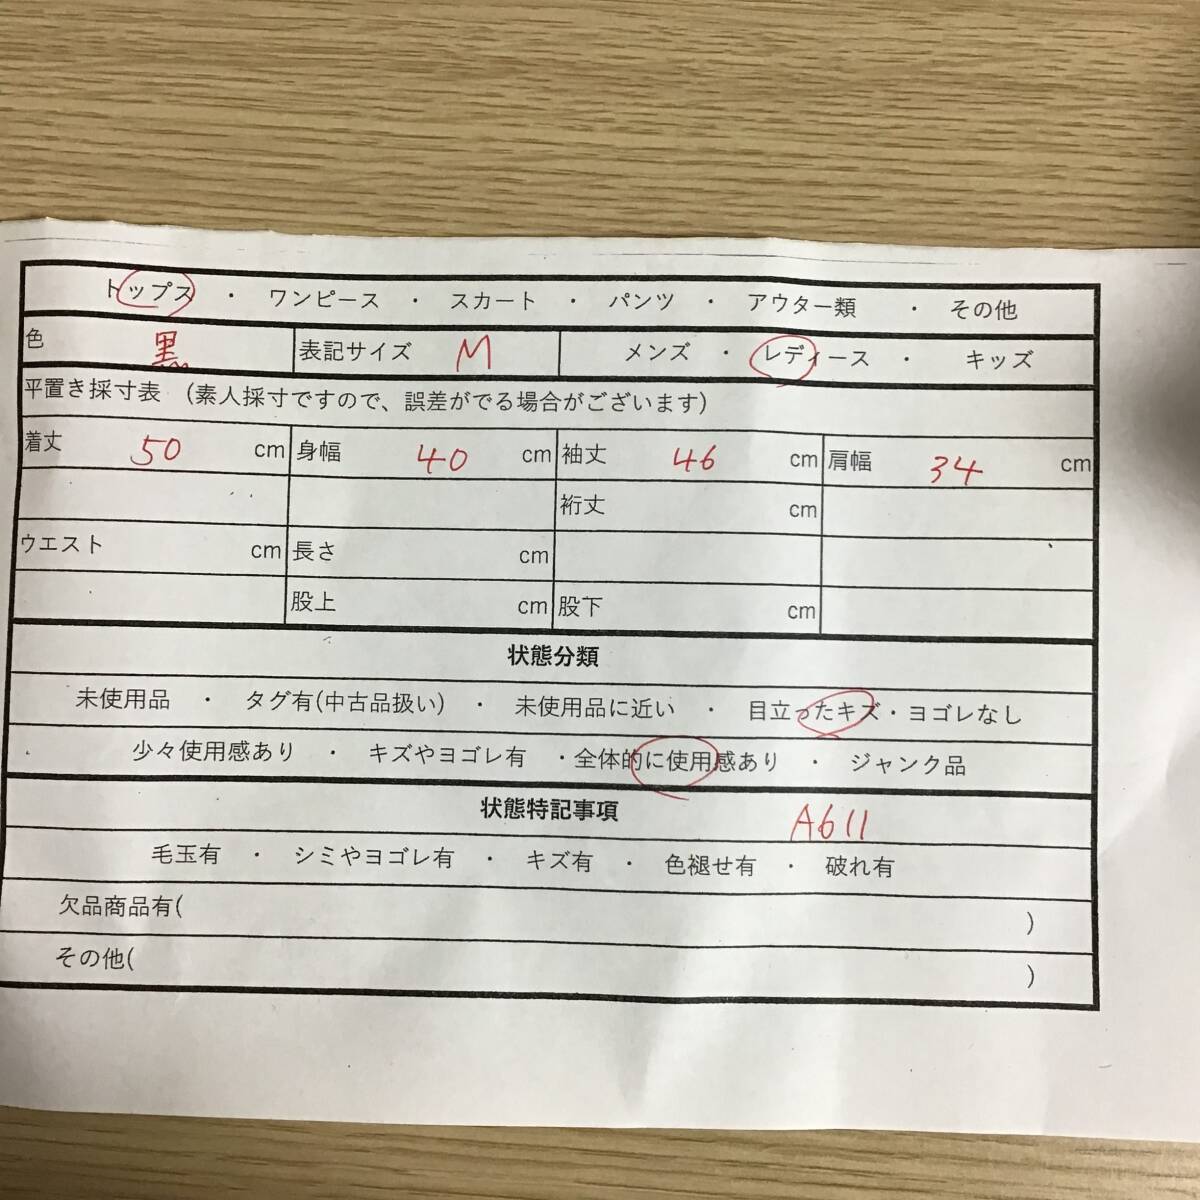 トップス ・ ワンピース ・ スカート ・ パンツ ・ アウター類 ・ その他
色 黒 表記サイズ M メンズ ・ レディース ・ キッズ
平置き採寸表 (素人採寸ですので、誤差がでる場合がございます)
着丈 50 cm 身幅 40 cm 袖丈 46 cm 肩幅 34 cm
裄丈 cm
ウエスト cm 長さ cm
股上 cm 股下 cm
状態分類
未使用品 ・ タグ有(中古品扱い) ・ 未使用品に近い ・ 目立ったキズ・ヨゴレなし
少々使用感あり ・ キズやヨゴレ有 ・全体的に使用感あり ・ ジャンク品
状態特記事項 A611
毛玉有 ・ シミやヨゴレ有 ・ キズ有 ・ 色褪せ有 ・ 破れ有
欠品商品有( )
その他( )